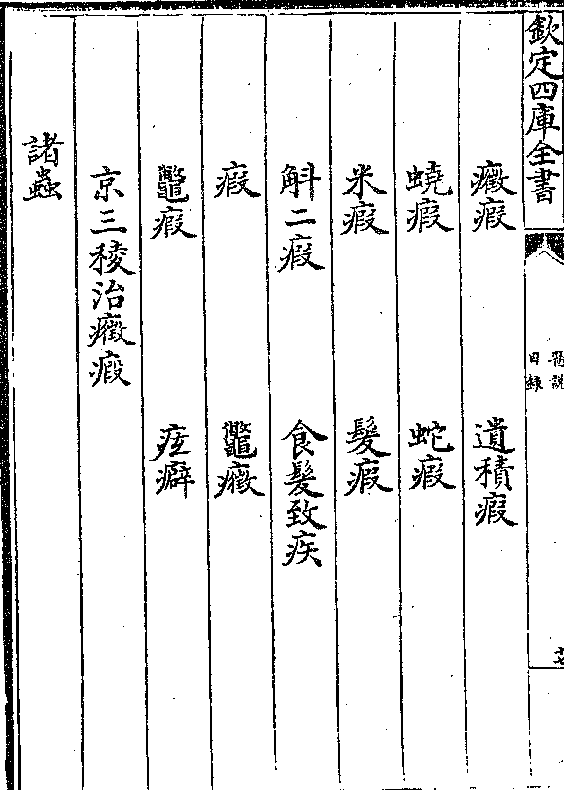 欽定四庫全書
醫說
目錄
癥瘕　遺積瘕
蟯瘕　蛇瘕
米瘕　髮瘕
斛二瘕　食髮致疾
瘕　鼈癥
鼈瘕　痃癖
京三稜治癥瘕
諸蟲